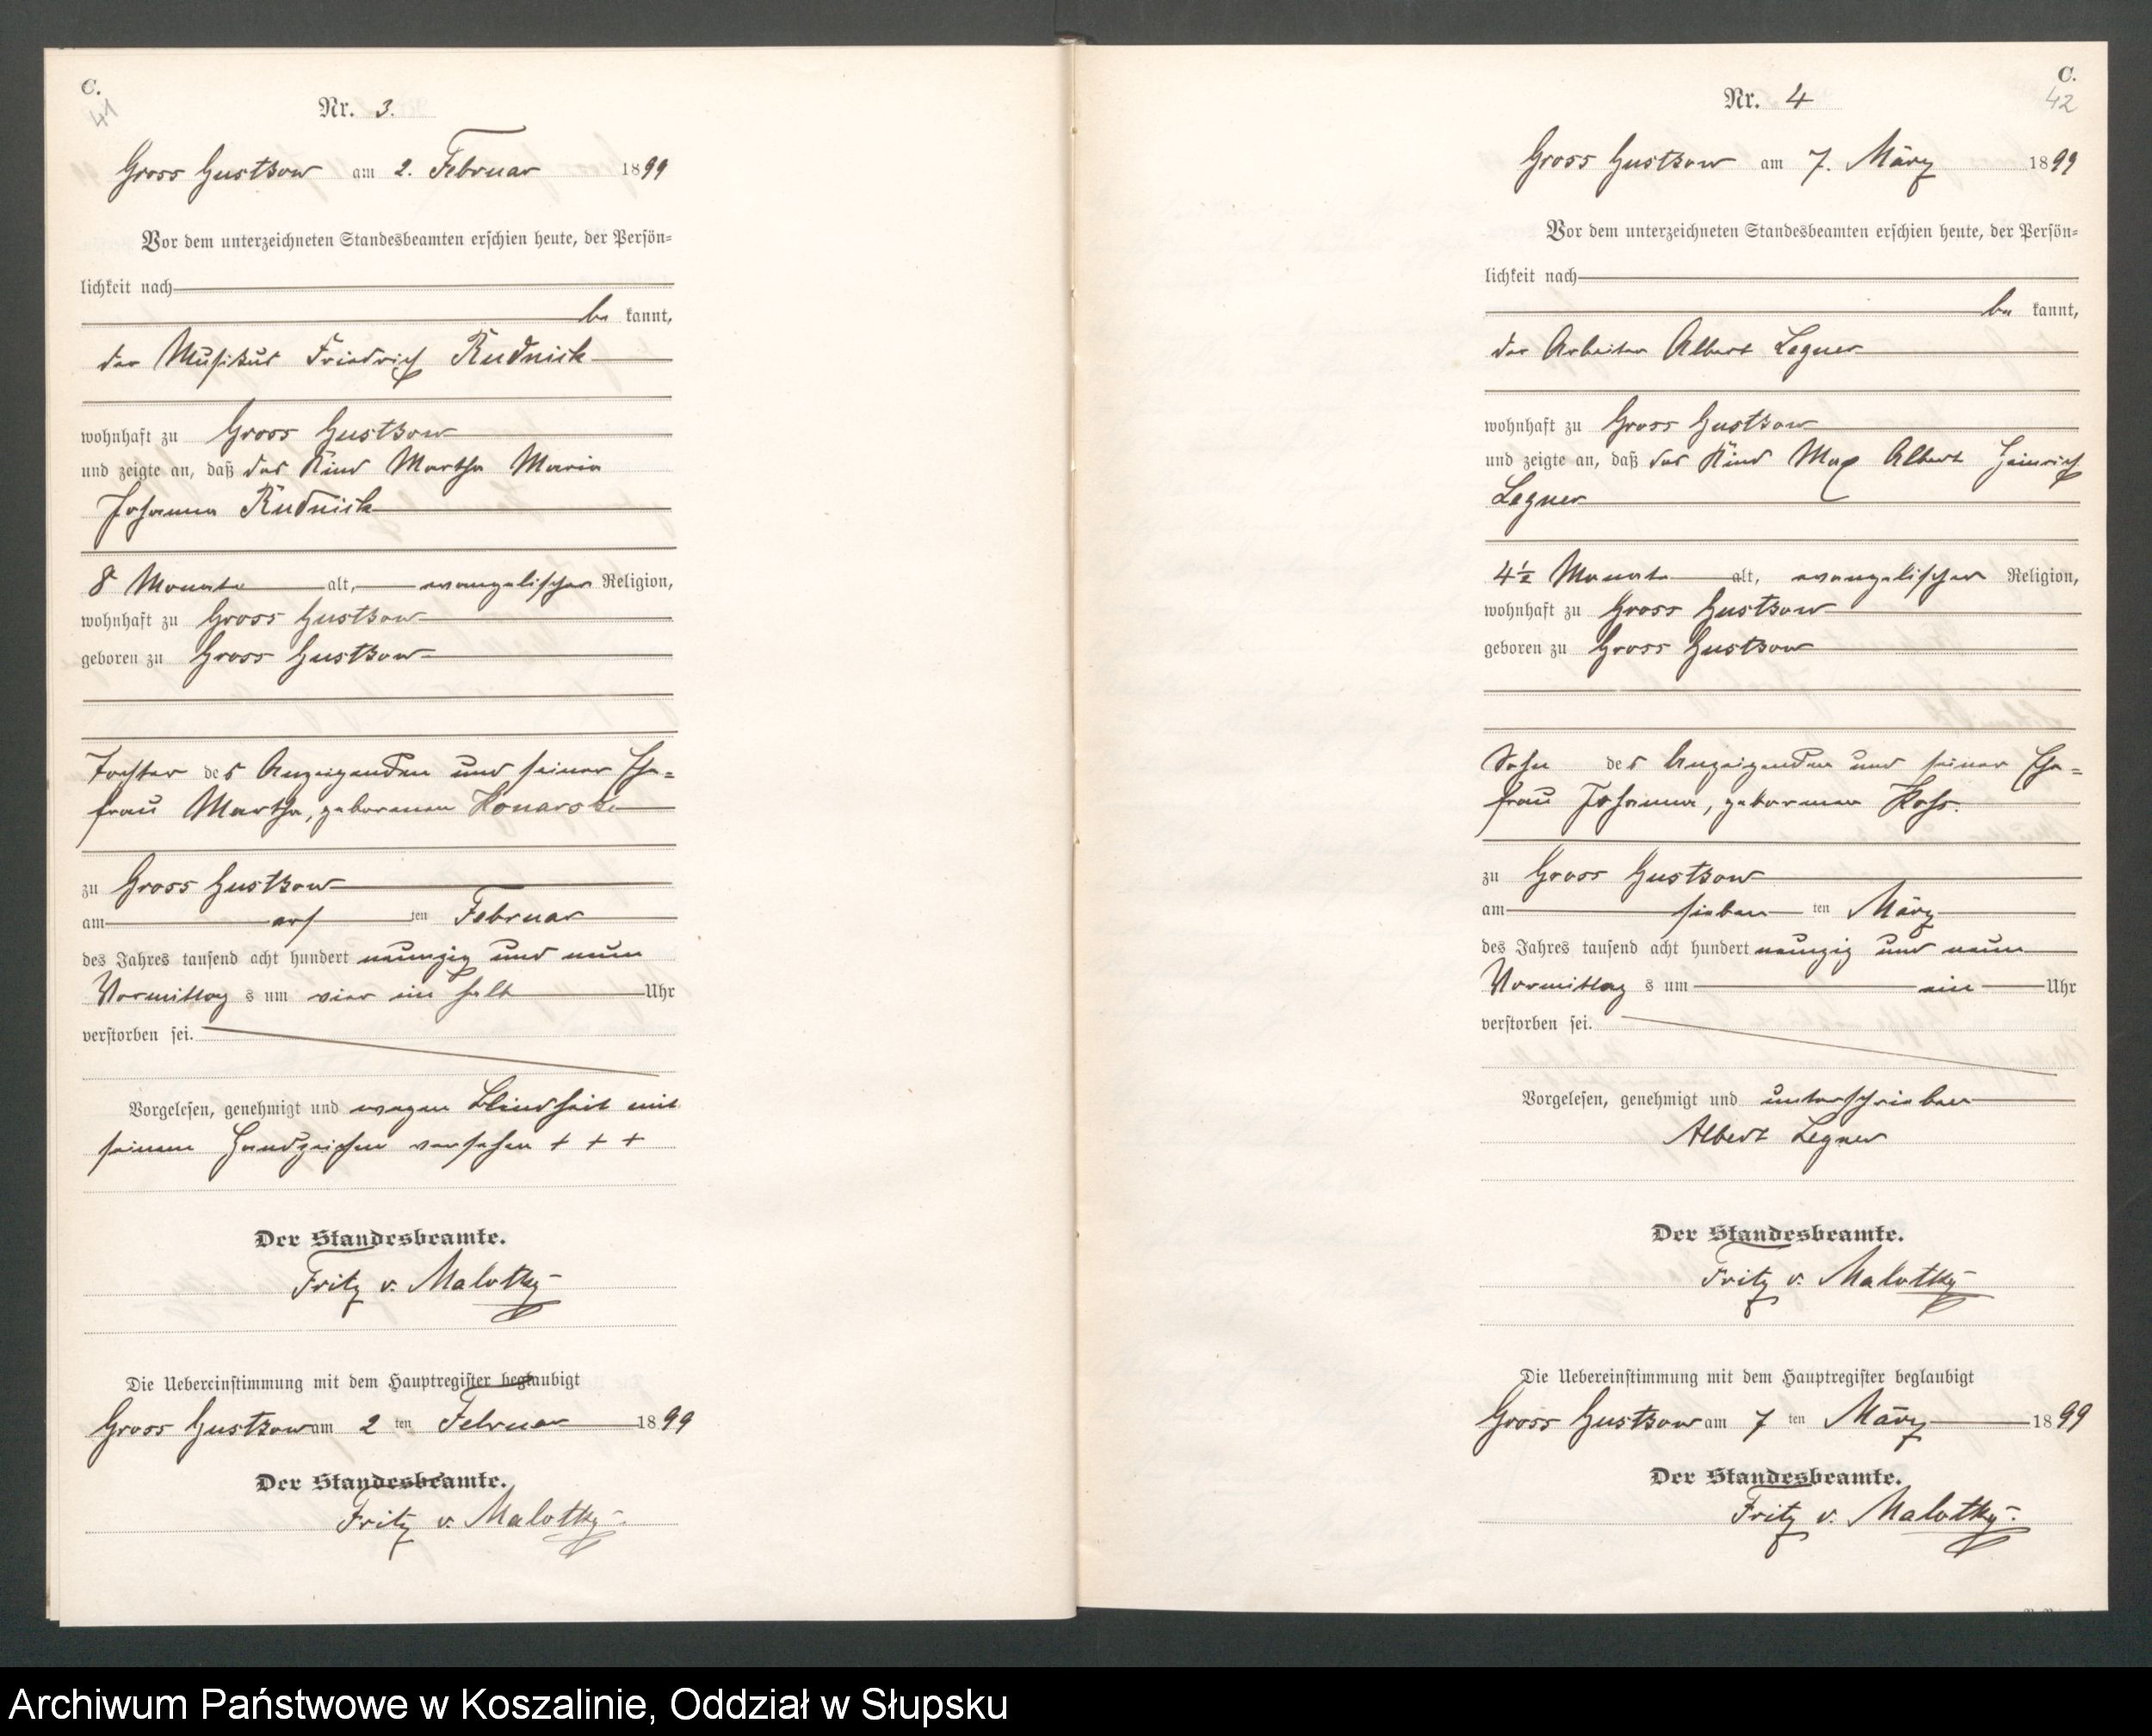 C.
41
Nr. 3.
Gross Gustkow am 2. Februar 1899
Vor dem unterzeichneten Standesbeamten erschien heute, der Persön=
lichkeit nach
be kannt,
der Musikus Friedrich Rudnick
wohnhaft zu Gross Gustkow
und zeigte an, daß das Kind Martha Maria
Johanna Rudnick
8 Monate alt, evangelischer Religion,
wohnhaft zu Gross Gustkow
geboren zu Gross Gustkow
Tochter des Anzeigenden und seiner Ehe=
frau Martha, geborenen Konarske
zu Gross Gustkow
am ers ten Februar
des Jahres tausend acht hundert neunzig und neun
Vormittag s um vier ein halb Uhr
verstorben sei.
Vorgelesen, genehmigt und wegen Blindheit mit
seinem Handzeichen versehen + + +
Der Standesbeamte.
Fritz v. Malotky
Die Uebereinstimmung mit dem Hauptregister beglaubigt
Gross Gustkow am 2 ten Februar 1899
Der Standesbeamte.
Fritz v. Malotky.
C.
42
Nr. 4
Gross Gustkow am 7. März 1899
Vor dem unterzeichneten Standesbeamten erschien heute, der Persön=
lichkeit nach
be kannt,
der Arbeiter Albert Legner
wohnhaft zu Gross Gustkow
und zeigte an, daß das Kind Max Albert Heinrich
Legner
4½ Monate alt, evangelischer Religion,
wohnhaft zu Gross Gustkow
geboren zu Gross Gustkow
Sohn des Anzeigenden und seiner Ehe=
frau Johanna, geborenen
zu Gross Gustkow
am sieben ten März
des Jahres tausend acht hundert neunzig und neun
Vormittag s um ein Uhr
verstorben sei.
Vorgelesen, genehmigt und unterschrieben
Albert Legner
Der Standesbeamte.
Fritz v. Malotky
Die Uebereinstimmung mit dem Hauptregister beglaubigt
Gross Gustkow am 7 ten März 1899
Der Standesbeamte.
Fritz v. Malotky.
Archiwum Państwowe w Koszalinie, Oddział w Słupsku